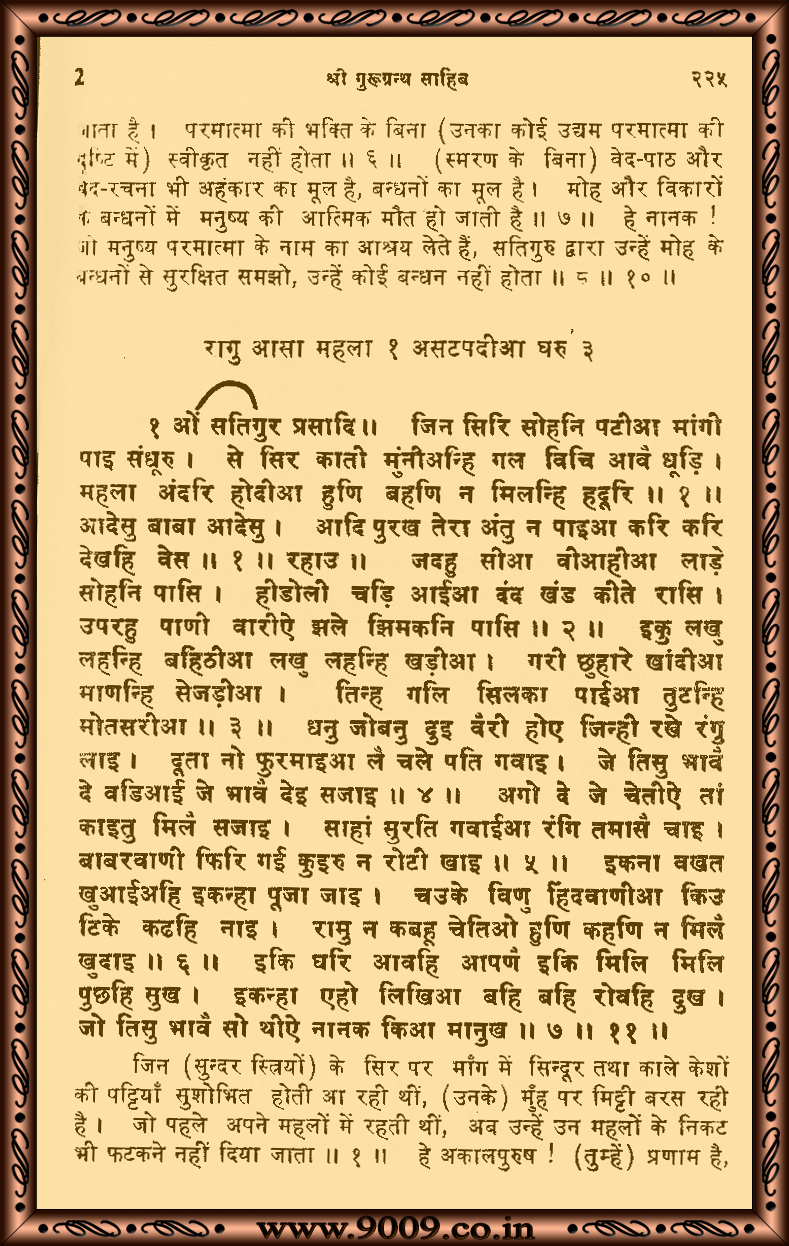 2 श्री गुरूग्रन्थ साहिब २२५
जाता है । परमात्मा की भक्ति के बिना (उनका कोई उद्यम परमात्मा की
दृष्टि में) स्वीकृत नहीं होता ॥ ६ ॥ (स्मरण के बिना) वेद-पाठ और
वेद-रचना भी अहंकार का मूल है, बन्धनों का मूल है । मोह और विकारों
के बन्धनों में मनुष्य की आत्मिक मौत हो जाती है ॥ ७ ॥ हे नानक !
जो मनुष्य परमात्मा के नाम का आश्रय लेते हैं, सतिगुरु द्वारा उन्हें मोह के
बन्धनों से सुरक्षित समझो, उन्हें कोई बन्धन नहीं होता ॥ ८ ॥ १० ॥
रागु आसा महला १ असटपदीआ घरु ३
१ ओं सतिगुर प्रसादि ॥ जिन सिरि सोहनि पटीआ मांगी
पाइ संधूरु । से सिर काती मुंनीअन्हि गल विचि आवै धूड़ि ।
महला अंदरि होदीआ हुणि बहणि न मिलन्हि हदूरि ॥ १ ॥
आदेसु बाबा आदेसु । आदि पुरख तेरा अंतु न पाइआ करि करि
देखहि वेस ॥ १ ॥ रहाउ ॥ जदहु सीआ वीआहीआ लाड़े
सोहनि पासि । हीडोली चड़ि आईआ दंद खंड कीते रासि ।
उपरहु पाणी वारीऐ झले झिमकनि पासि ॥ २ ॥ इकु लखु
लहन्हि बहिठीआ लखु लहन्हि खड़ीआ । गरी छुहारे खांदीआ
माणन्हि सेजड़ीआ । तिन्ह गलि सिलका पाईआ तुटन्हि
मोतसरीआ ॥ ३ ॥ धनु जोबनु दुइ वैरी होए जिन्ही रखे रंगु
लाइ । दूता नो फुरमाइआ लै चले पति गवाइ । जे तिसु भावै
दे वडिआई जे भावै देइ सजाइ ॥ ४ ॥ अगो दे जे चेतीऐ तां
काइतु मिलै सजाइ । साहां सुरति गवाईआ रंगि तमासै चाइ ।
बाबरवाणी फिरि गई कुइरु न रोटी खाइ ॥ ५ ॥ इकना वखत
खुआईअहि इकन्हा पूजा जाइ । चउके विणु हिंदवाणीआ किउ
टिके कढहि नाइ । रामु न कबहू चेतिओ हुणि कहणि न मिलै
खुदाइ ॥ ६ ॥ इकि घरि आवहि आपणै इकि मिलि मिलि
पुछहि सुख । इकन्हा एहो लिखिआ बहि बहि रोवहि दुख ।
जो तिसु भावै सो थीऐ नानक किआ मानुख ॥ ७ ॥ ११ ॥
जिन (सुन्दर स्त्रियों) के सिर पर माँग में सिन्दूर तथा काले केशों
की पट्टियाँ सुशोभित होती आ रही थीं, (उनके) मुँह पर मिट्टी बरस रही
है । जो पहले अपने महलों में रहती थीं, अब उन्हें उन महलों के निकट
भी फटकने नहीं दिया जाता ॥ १ ॥ हे अकालपुरुष ! (तुम्हें) प्रणाम है,
www.9009.co.in